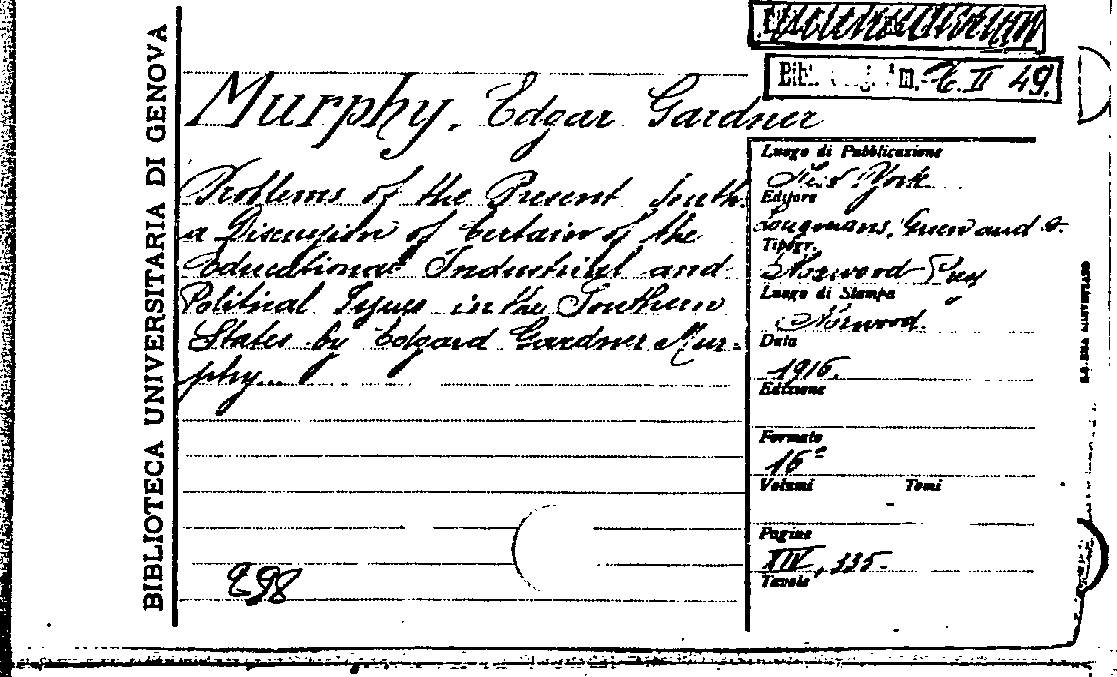 BIBLIOTECA UNIVERSITARIA DI GENOVA
II 49.
Murphy, Edgar Gardner
Problems of the Present South.
a Discussion of Certain of the
Educational Industrial and
Political Issues in the Southern
States by Edgard Gardner Mur-
phy...
298
Luogo di Pubblicazione
New York
Editore
Longmans, Green and
Tipogr.
Norwood Press
Luogo di Stampa
Norwood.
Data
1916.
Edizione
Formato
16°
Volumi Tomi
-
Pagine
XIV, 335-
Tavole